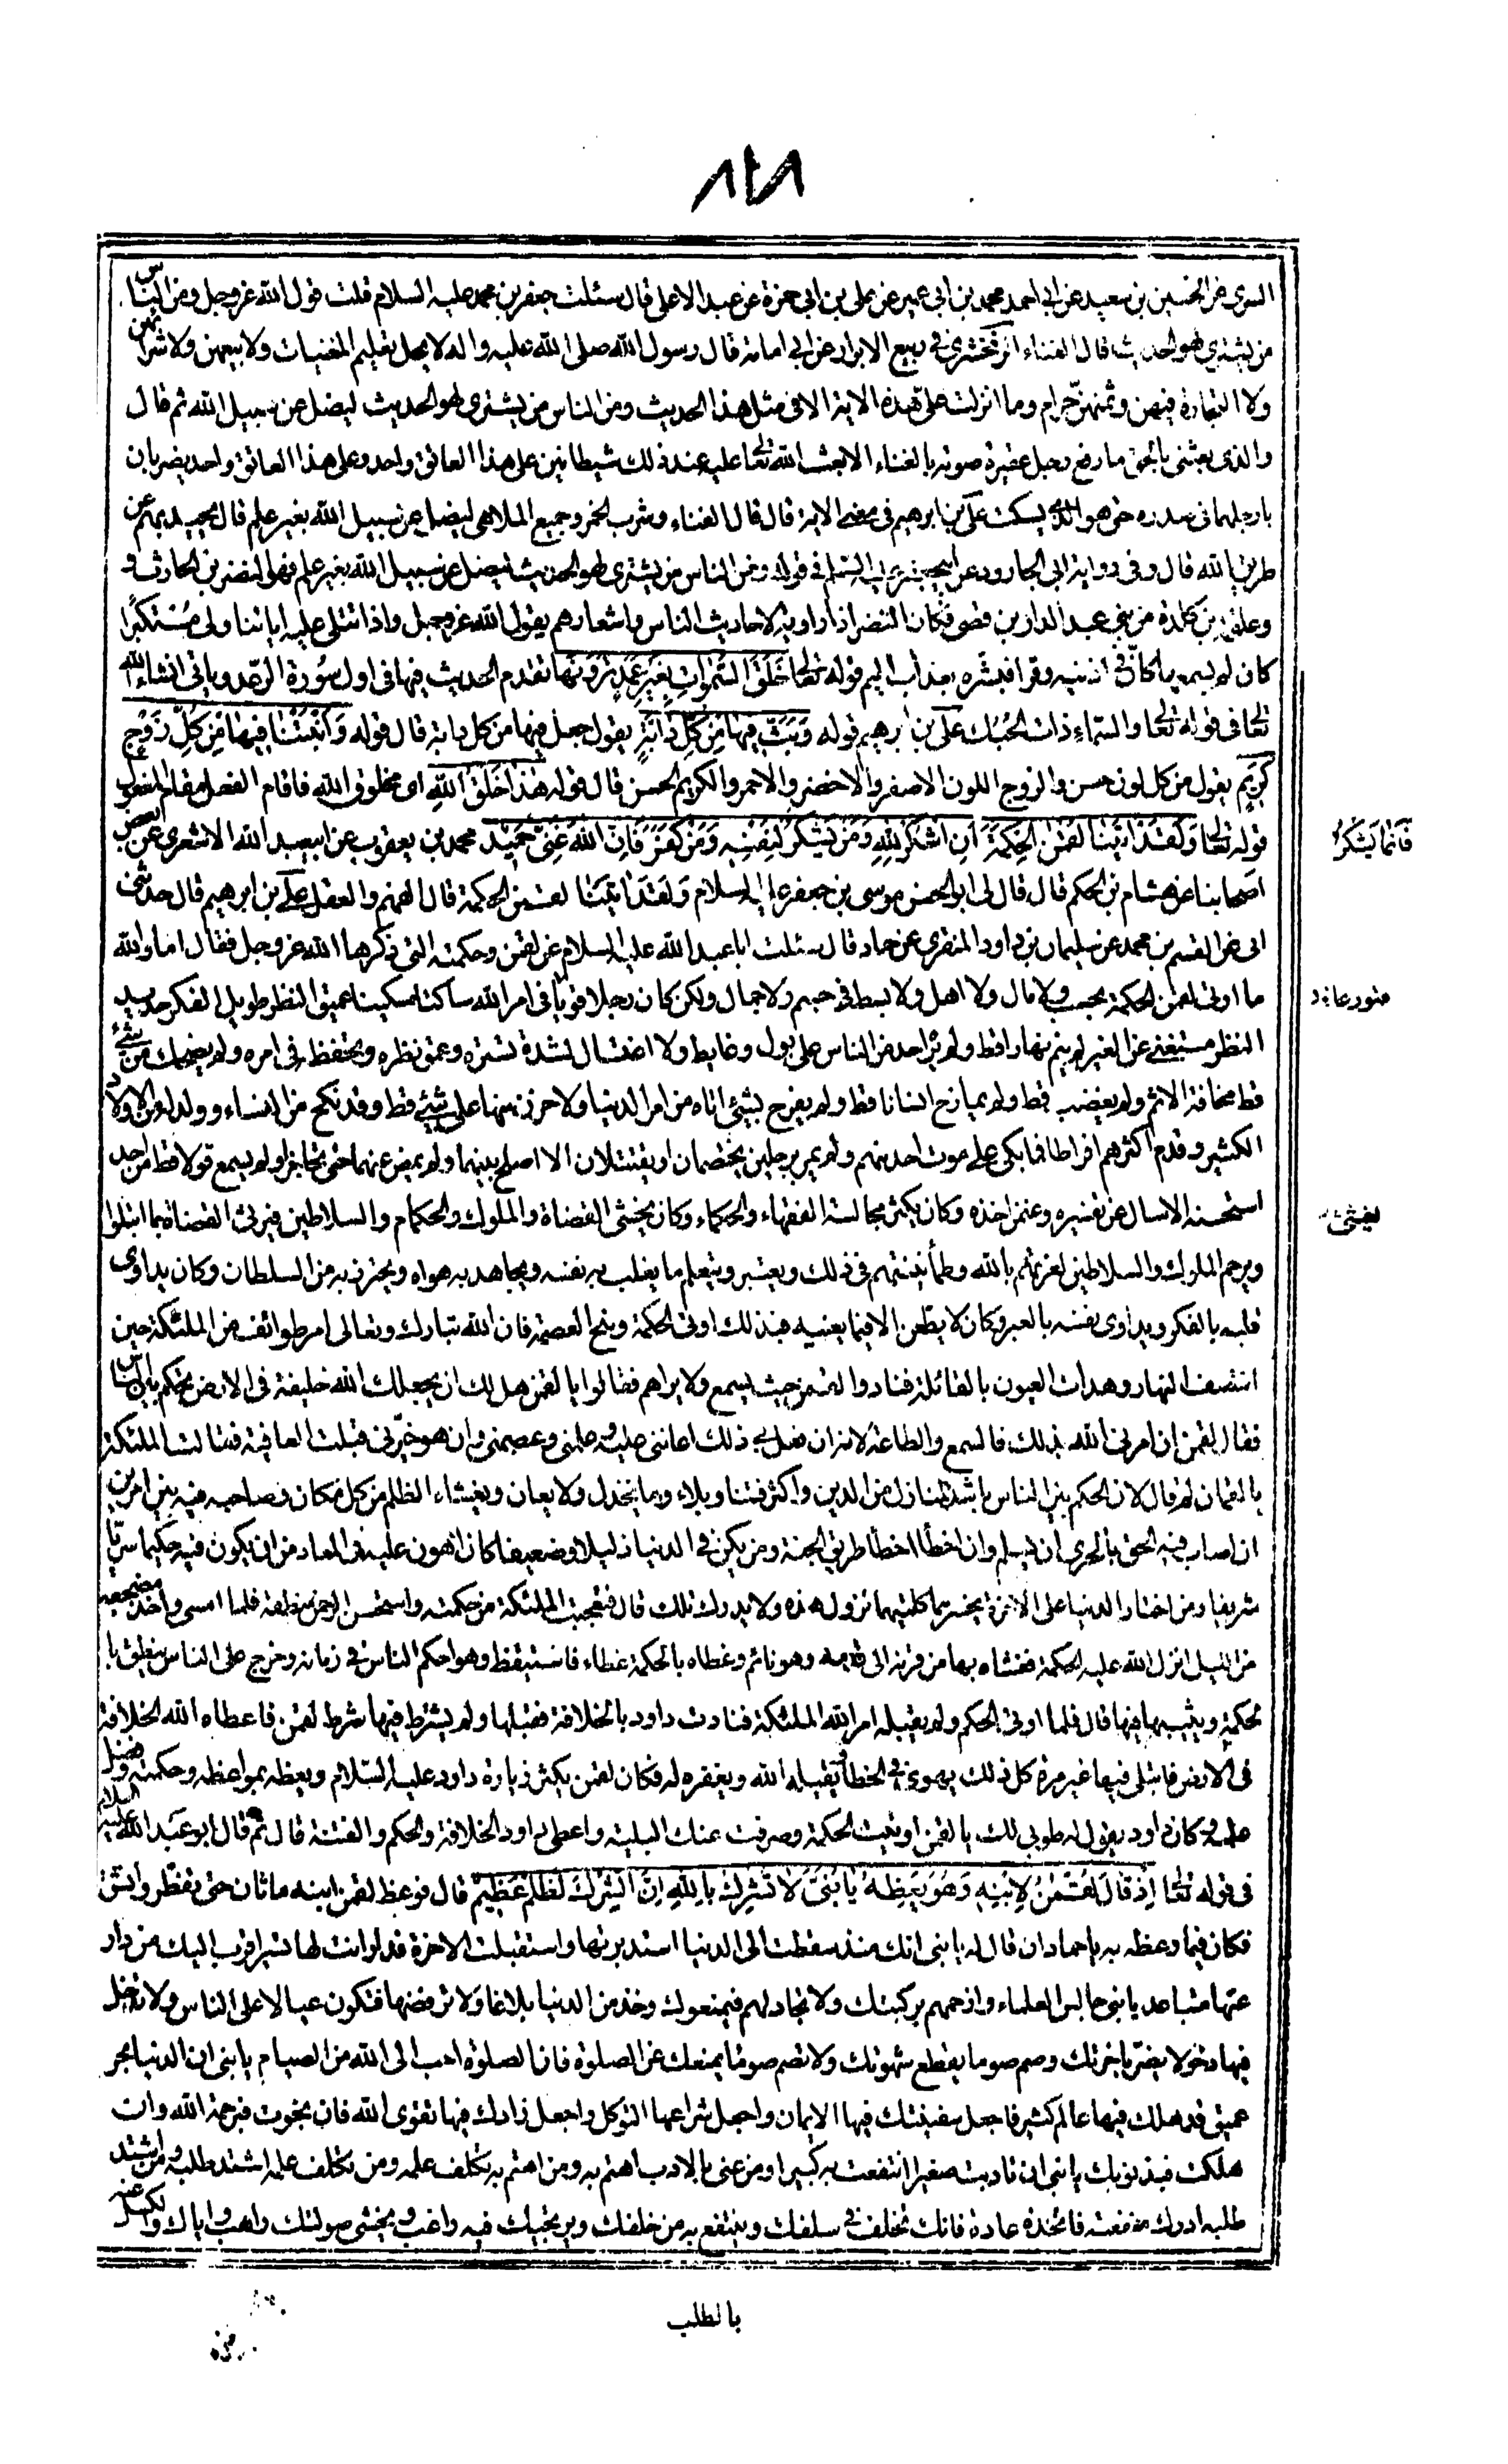 ٨٢٨
السرى عن الحسين بن سعيد عن ابى احمد محمد بن ابى عمير عن على بن ابى حمزة عن عبد الاعلى قال سئلت جعفر بن محمد عليه السلام قلت قول الله عز وجل ومن الناس
من يشترى لهو الحديث قال الغناء الزمخشرى فى ربيع الابرار عن ابى امامة قال رسول الله صلى الله عليه واله لا يحل تعليم المغنيات ولا بيعهن ولا شرائهن
ولا التجارة فيهن وثمنهن حرام وما انزلت على هذه الاية الا فى مثل هذا الحديث ومن الناس من يشترى لهو الحديث ليضل عن سبيل الله ثم قال
والذى بعثنى بالحق ما رفع رجل عقيرة صوته بالغناء الا بعث الله تعالى عليه عند ذلك شيطانين على هذا العاتق واحد وعلى هذا العاتق واحد يضربان
بارجلهما فى صدره حتى هو الذى يسكت على بن ابرهيم فى معنى الاية قال قال الغناء وشرب الخمر وجميع الملاهى ليضل عن سبيل الله بغير علم قال يحيد بهم عن
طريق الله قال وفى رواية ابى الجارود عن ابيجعفر عليه السلام فى قوله ومن الناس من يشترى لهو الحديث ليضل عن سبيل الله بغير علم فهو النضر بن الحارث و
وعلقة بن كلدة من بنى عبد الدار بن قصى فكان النضر اذا راوية لاحاديث الناس واشعارهم يقول الله عز وجل واذا تتلى عليه اياتنا ولى مستكبرا
كان لم يسمعها كأن فى اذنيه وقرا فبشره بعذاب اليم قوله تعالى خَلَقَ السَّمٰوَاتِ بِغَيْرِ عَمَدٍ تَرَوْنَهَا تقدم الحديث فيها فى اول سورة الرعد وياتى انشاء الله
تعالى فى قوله تعالى والسماء ذات الحبك على بن ابرهيم قوله وَبَثَّ فِيهَا مِنْ كُلِّ دَابَّةٍ يقول جعل فيها من كل دابة قال قوله وَاَنْبَتْنَا فِيهَا مِنْ كُلِّ زَوْجٍ
كَرِيمٍ يقول من كل لون حسن والزوج اللون الاصفر والاخضر والاحمر والكريم الحسن قال قوله هٰذَا خَلْقُ اللّٰهِ اى مخلوق الله فاقام الفعل مقام المفعول
قوله تعالى وَلَقَدْ اٰتَيْنَا لُقْمٰنَ الْحِكْمَةَ اَنِ اشْكُرْ لِلّٰهِ وَمَنْ يَشْكُرْ لِنَفْسِهِ وَمَنْ كَفَرَ فَاِنَّ اللّٰهَ غَنِىٌّ حَمِيدٌ محمد بن يعقوب عن ابيعبد الله الاشعرى عن بعض
فَاِنَّمَا يَشْكُرُ
اصحابنا عن هشام بن الحكم قال قال لى ابو الحسن موسى بن جعفر عليه السلام ولقد اتينا لقمن الحكمة قال الفهم والعقل على بن ابرهيم قال حدثنى
ابى عن القسم بن محمد عن سليمان بن داود المنقرى عن حماد قال سئلت ابا عبد الله عليه السلام عن لقمن وحكمته التى ذكرها الله عز وجل فقال اما والله
ما اوتى لقمن الحكمة بحسب ولا مال ولا اهل ولا بسط فى جسم ولا جمال ولكن كان رجلا قويا فى امر الله ساكتا مسكينا عميق النظر طويل الفكر حديد
النظر مستغنى عن الغير لم ينم نهارا قط ولم يره احد من الناس على بول وغايط ولا اغتسال لشدة تستره وعمق نظره وتحفظه فى امره ولم يضحك من شئ
قط مخافة الاثم ولم يغضب قط ولم يمازح انسانا قط ولم يفرح بشئ اتاه من امر الدنيا ولا حزن منها على شئ قط وقد نكح من النساء وولد له الاولاد
الكثير وقدم اكثرهم افراطا فما بكى على موت احد منهم ولم يمر برجلين يختصمان او يقتتلان الا اصلح بينهما ولم يمض عنهما حتى تحاجزا ولم يسمع قولا قط من احد
استحسنه الا سال عن تفسيره وعمن اخذه وكان يكثر مجالسة الفقهاء والحكماء وكان يخشى القضاة والملوك والحكام والسلاطين فيرثى القضاة بما ابتلوا
يغشى
ويرحم الملوك والسلاطين لغرتهم بالله وطمأنينتهم فى ذلك ويعتبر ويتعلم ما يغلب به نفسه ويجاهد به هواه ويحترز به من السلطان وكان يداوى
قلبه بالفكر ويداوى نفسه بالعبر وكان لا يظعن الا فيما يعنيه فبذلك اوتى الحكمة ومنح العصمة فان الله تبارك وتعالى امر طوائف من الملئكة حين
انتصف النهار وهدات العيون بالقائلة فنادوا لقمن حيث يسمع ولا يراهم فقالوا يا لقمن هل لك ان يجعلك الله خليفة فى الارض تحكم بين الناس
فقال لقمن ان امرنى الله بذلك فالسمع والطاعة لانه ان فعل بى ذلك اعاننى عليه وعلمنى وعصمنى وان هو خيرنى قبلت العافية فقالت الملئكة
يا لقمان لم قال لان الحكم بين الناس باشد المنازل من الدين واكثر فتنا وبلاء وما يخذل ولا يعان ويغشاه الظلم من كل مكان وصاحبه فيه بين امرين
ان اصاب فيه الحق فبالحرى ان يسلم وان اخطأ اخطأ طريق الجنة ومن يكن فى الدنيا ذليلا وضعيفا كان اهون عليه فى المعاد من ان يكون فيه حكيما سريا
شريفا ومن اختار الدنيا على الاخرة يخسرهما كلتيهما تزول هذه ولا يدرك تلك قال فتعجبت الملئكة من حكمته واستحسن الرحمن منطقه فلما امسى واخذ مضجعه
من الليل انزل الله عليه الحكمة فغشاه بها من قرنه الى قدمه وهو نائم وغطاه بالحكمة غطاء فاستيقظ وهو احكم الناس فى زمانه وخرج على الناس ينطق با
لحكمة ويثبتها فيها قال فلما اوتى الحكم ولم يقبله امر الله الملئكة فنادت داود بالخلافة فقبلها ولم يشترط فيها شرط لقمن فاعطاه الله الخلافة
فى الارض فابتلى فيها غير مرة كل ذلك يهوى فى الخطأ يقيله الله ويغفره له فكان لقمن يكثر زيارة داود عليه السلام ويعظه بمواعظه وحكمته وفضل
علمه وكان داود يقول له طوبى لك يا لقمن اوتيت الحكمة وصرفت عنك البلية واعطى داود الخلافة والحكم والفتنة قال ثم قال ابو عبد الله عليه السلام
فى قوله تعالى اِذْ قَالَ لُقْمٰنُ لِابْنِهِ وَهُوَ يَعِظُهُ يَا بُنَىَّ لَا تُشْرِكْ بِاللّٰهِ اِنَّ الشِّرْكَ لَظُلْمٌ عَظِيمٌ قال فوعظ لقمن ابنه ماثان حتى تفطر وانشق
فكان فيما وعظه به يا حماد ان قال له يا بنى انك منذ سقطت الى الدنيا استدبرتها واستقبلت الاخرة فدار انت لها تسير اقرب اليك من دار
عنها متباعد يا بنى جالس العلماء وازحمهم بركبتك ولا تجادلهم فيمنعوك وخذ من الدنيا بلاغا ولا ترفضها فتكون عيالا على الناس ولا تدخل
فيها دخولا يضر باخرتك وصم صوما يقطع شهوتك ولا تصم صوما يمنعك عن الصلوة فان الصلوة احب الى الله من الصيام يا بنى ان الدنيا بحر
عميق قد هلك فيها عالم كثير فاجعل سفينتك فيها الايمان واجعل شراعها التوكل واجعل زادك فيها تقوى الله فان نجوت فبرحمة الله وان
هلكت فبذنوبك يا بنى ان تادبت صغيرا انتفعت به كبيرا ومن عنى بالادب اهتم به ومن اهتم به تكلف علمه ومن تكلف علمه اشتد طلبه ومن اشتد
طلبه ادرك منفعته فاتخذه عادة فانك تخلف فى سلفك وينتفع به من خلفك ويرتجيك فيه راغب ويخشى صولتك راهب واياك والكسل عنه
بالطلب